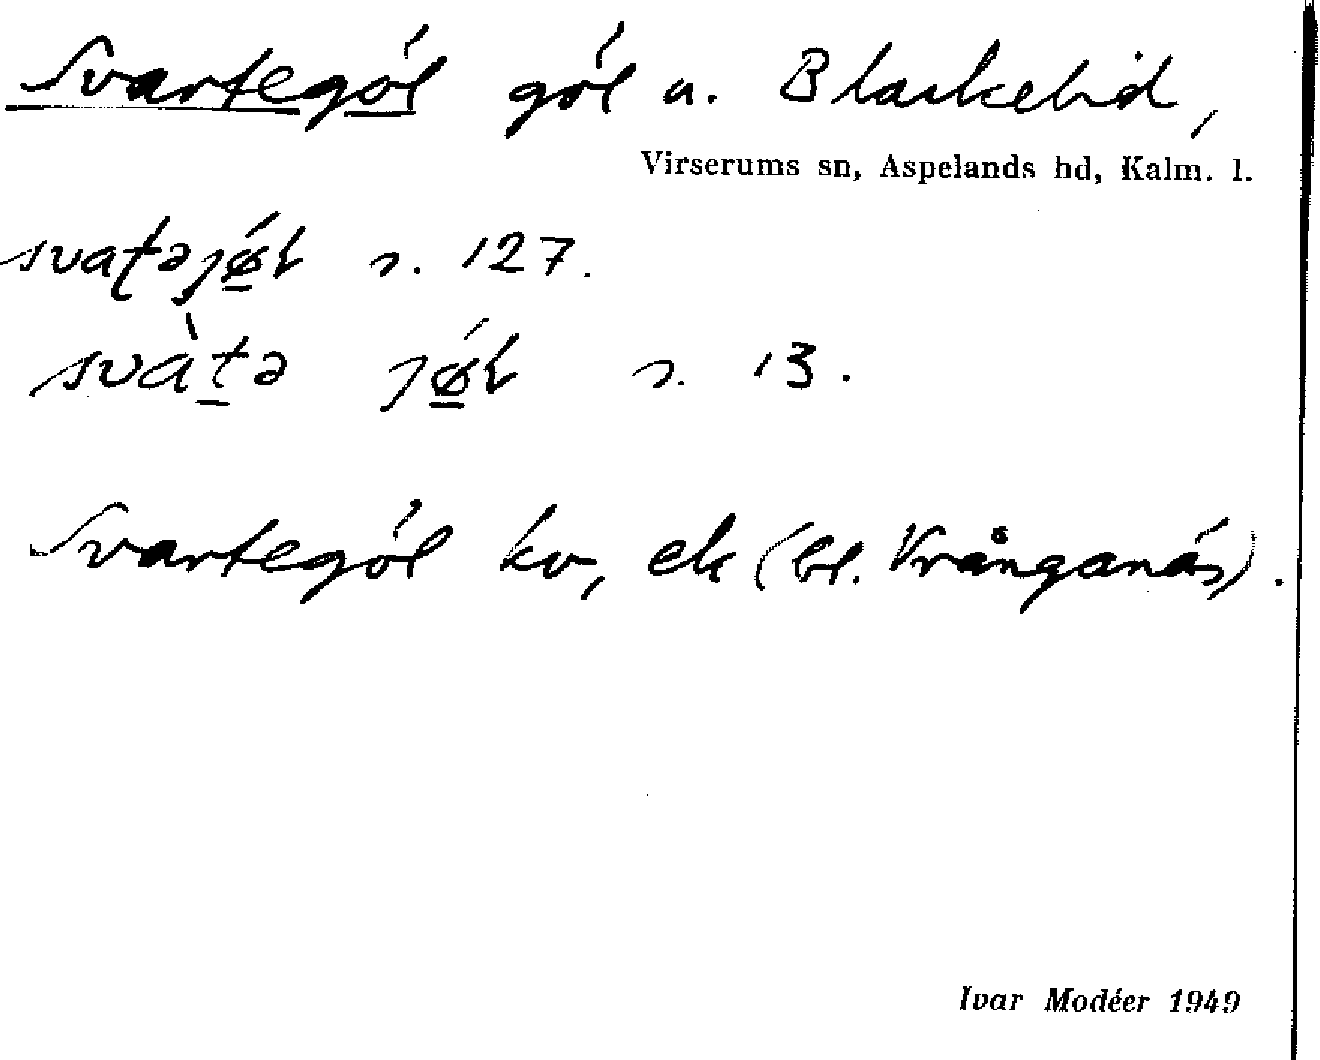 Svartegól gól u. Blankelid,
Virserums sn, Aspelands hd, Kalm. l.
svaʈəȷǿɫ s. 127.
svàʈə ȷǿɫ s. 13.
Svartegól kv, ek (bl. Vrånganäs).
Ivar Modéer 1949